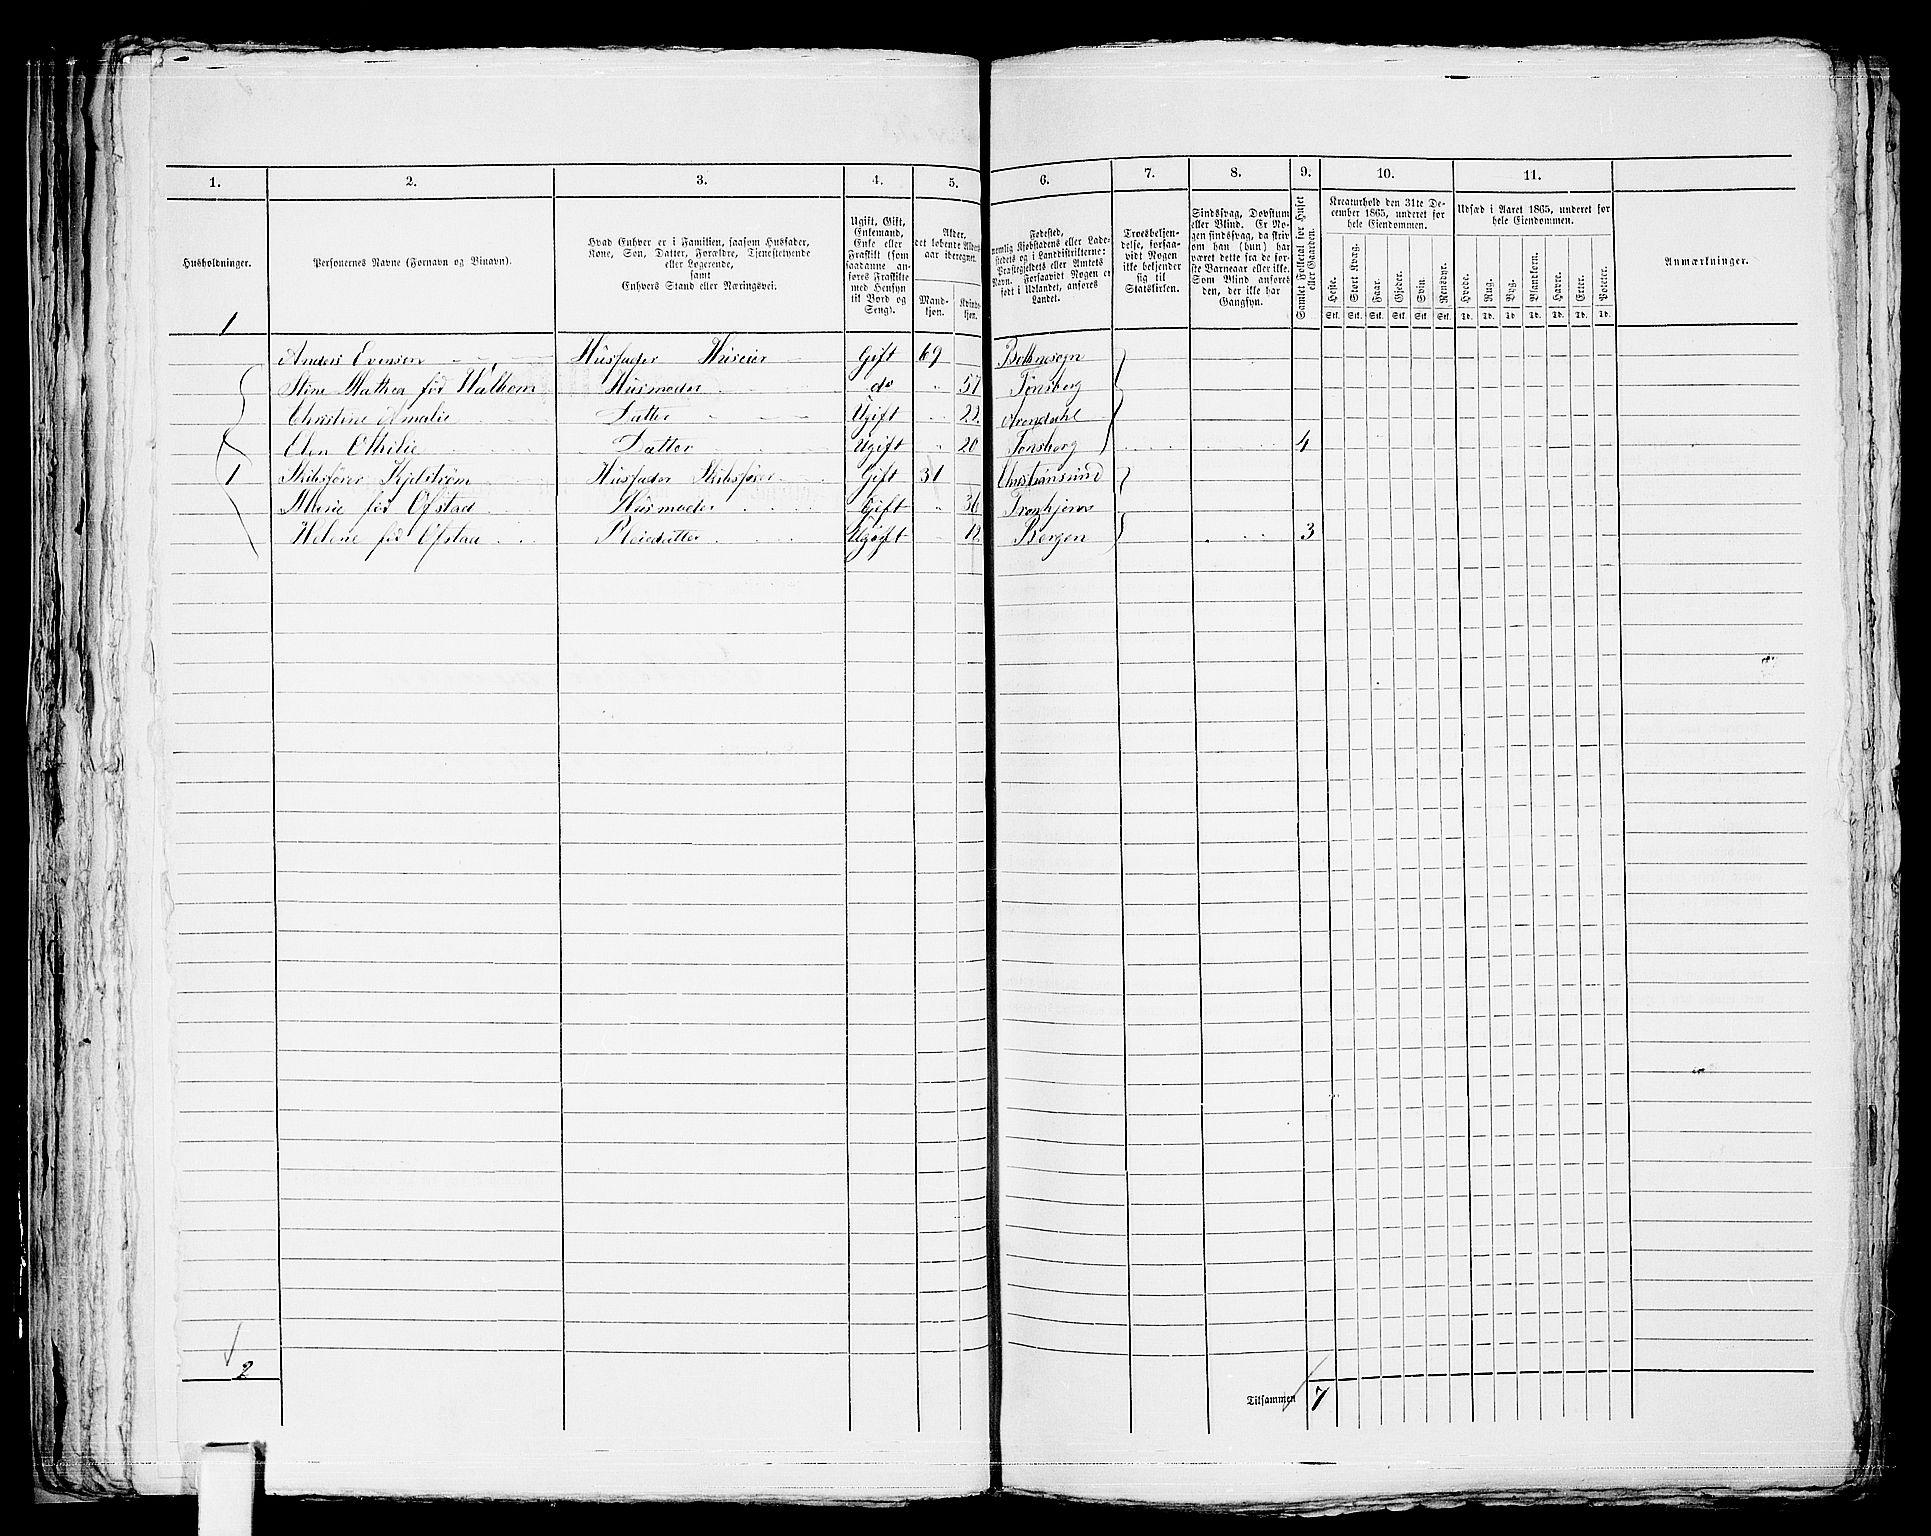 1. 2. 3. 4. 5. 6. 7. 8. 9. 10. 11.
Husholdninger.
Personernes Navne (Fornavn og Vinavn).
Hvad Enhver er i Familien, saasom Husfader,
Kone, Søn, Datter, Forældre, Tjenestetyende
eller Logerende,
samt
Enhvers Stand eller Næringsvei.
Ugift, Gift,
Enkemand,
Enke eller
Fraskilt (som
saadanne an-
føres Fraskilte
med Hensyn
til Bord og
Seng).
Alder,
det løbende Alders-
aar iberegnet.
Mand-
kjøn.
Kvinde-
kjøn.
Fødested,
nemlig Kjøbstadens eller Lade-
stedets og i Landdistrikterne:
Præstegjeldets eller Amtets
Navn. Forsaavidt Nogen er
født i Udlandet, anføres
Landet.
Troesbekjen-
delse, forsaa-
vidt Nogen
ikke bekjender
sig til
Statskirken.
Sindssvag, Døvstum
eller Blind. Er No-
gen sindssvag, da skriv
om han (hun) har
været dette fra de før-
ste Barneaar eller ikke.
Som Blind anføres
den, der ikke har
Gangsyn.
Samlet Folketal for Huset
eller Gaarden.
Kreaturhold den 31te De-
cember 1865, underet for
hele Eiendommen.
Heste. Stort Kvæg. Faar. Gjeder. Svin. Rensdyr.
Stk. Stk. Stk. Stk. Stk. Stk.
Udsæd i Aaret 1865, underet for
hele Eiendommen.
Hvede. Rug. Byg. Blandkorn. Havre. Erter. Poteter.
Td. Td. Td. Td. Td. Td. Td.
Anmærkninger.
1
Anders Evensen Husfader Huseier Gift 69 Botnesogn
Stine Mathea før Walbom Husmoder do 57 Tønsberg
Christine Amalie Datter Ugift 22 Arendahl
Elen Othilie Datter Ugift 20 Tønsberg 4
1 Skibsfører Kjelstrøm Husfader Skibsfører Gift 31 Christiansund
Marie før Ofstad Husmoder Gift 36 Tronhjem
Helene før Ofstad Pleiedatter Ugift 12 Bergen 3
2
Tilsammen 7